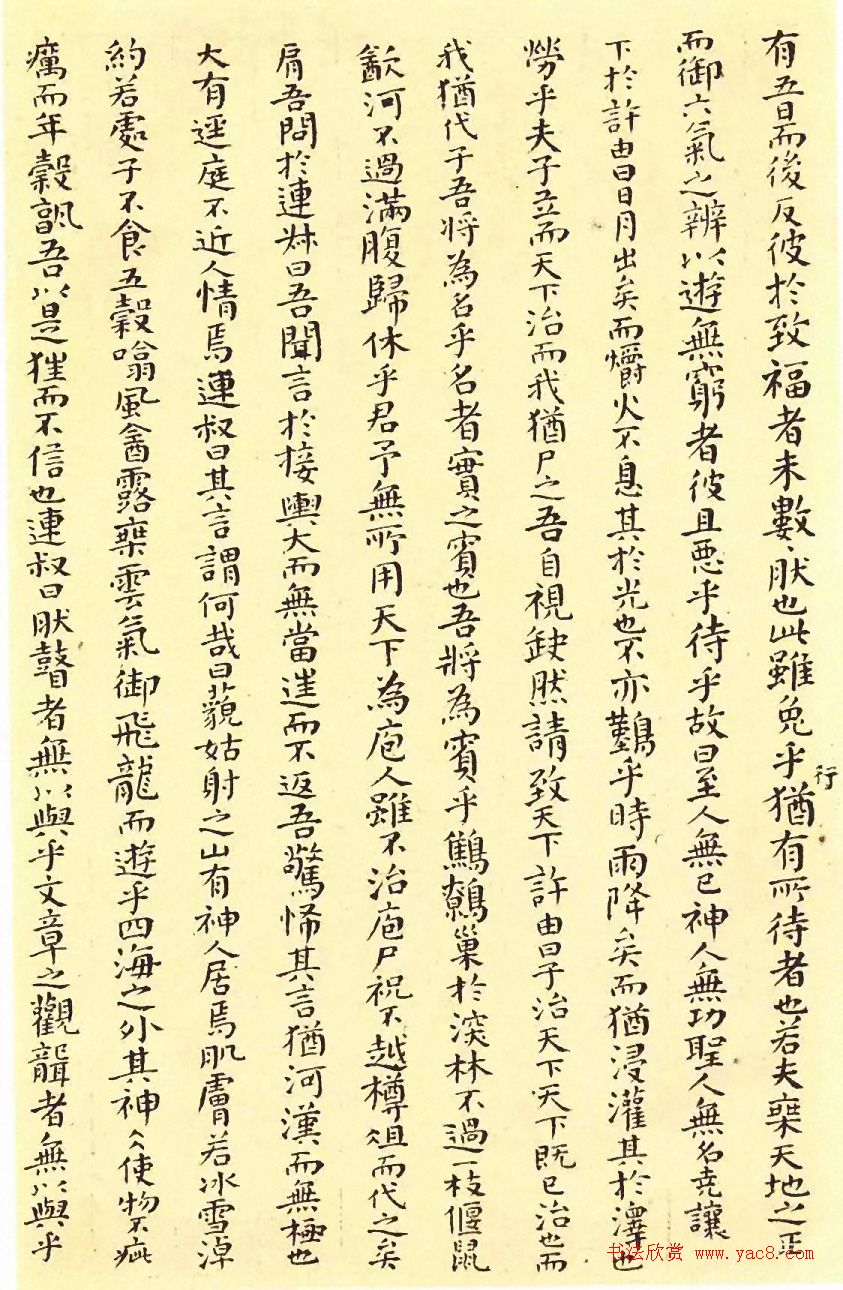 有五日而後反彼於致福者未數〻肰也此雖免乎行猶有所待者也若夫椉天地之正
而御六氣之辨以遊無窮者彼且惡乎待乎故曰至人無己神人無功聖人無名堯讓
下於許由曰日月出矣而爝火不息其於光也不亦難乎時雨降矣而猶浸灌其於澤也
勞乎夫子立而天下治而我猶尸之吾自視缺然請致天下許由曰子治天下天下既已治也而
我猶代子吾將為名乎名者實之賓也吾將為賓乎鷦鷯巢於深林不過一枝偃鼠
飲河不過滿腹歸休乎君予無所用天下為庖人雖不治庖尸祝不越樽俎而代之矣
肩吾問於連叔曰吾聞言於接輿大而無當逞而不返吾驚怖其言猶河漢而無極也
大有逕庭不近人情焉連叔曰其言謂何哉曰藐姑射之山有神人居焉肌膚若冰雪淖
約若處子不食五穀噏風飲露椉雲氣御飛龍而遊乎四海之外其神〻使物不疵
癘而年穀孰吾以是狂而不信也連叔曰肰瞽者無以與乎文章之觀聾者無以與乎
书法欣赏 www.yac8.com